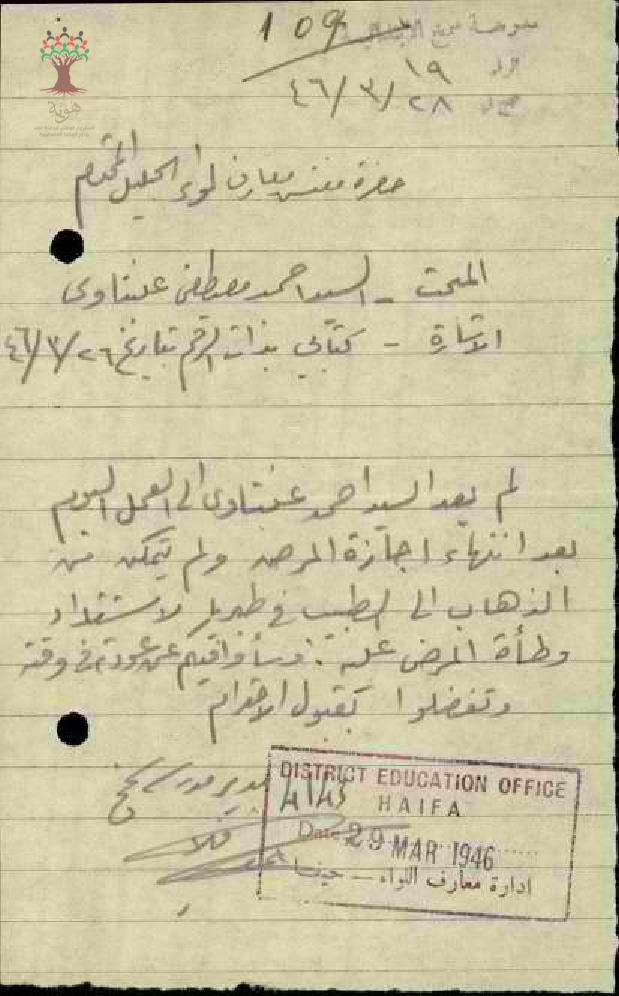 109
مدرسة سمخ
١٩
٤٦/٣/٢٨
هوية
حضرة مفتش معارف لواء الجليل المحترم
المبحث - السيد احمد مصطفى عنبتاوى
الاشارة - كتابي بذات الرقم تاريخ ٤٦/٣/٢٦
لم يعد السيد احمد عنبتاوى الى العمل اليوم
بعد انتهاء اجازة المرض ولم يتمكن من
الذهاب الى الطبيب في طبريا لاشتداد
وطأة المرض عليه. وسأوافيكم عن عودته في وقته
وتفضلوا بقبول الاحترام
مدير مدرسة سمخ
DISTRICT EDUCATION OFFICE
4143
HAIFA
Date 29 MAR 1946
ادارة معارف اللواء — حيفا